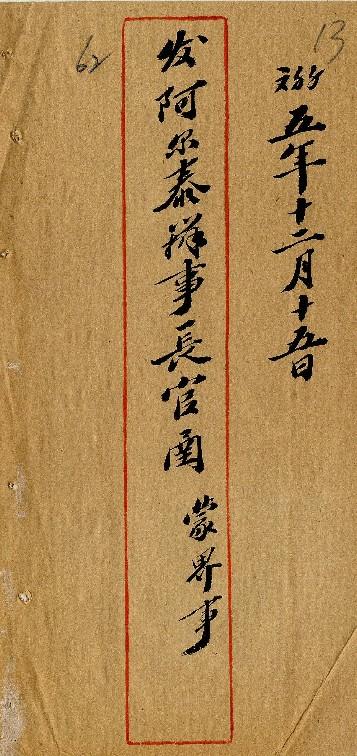 13
五年十二月十五日
发阿尔泰辦事長官函 蒙界事
62